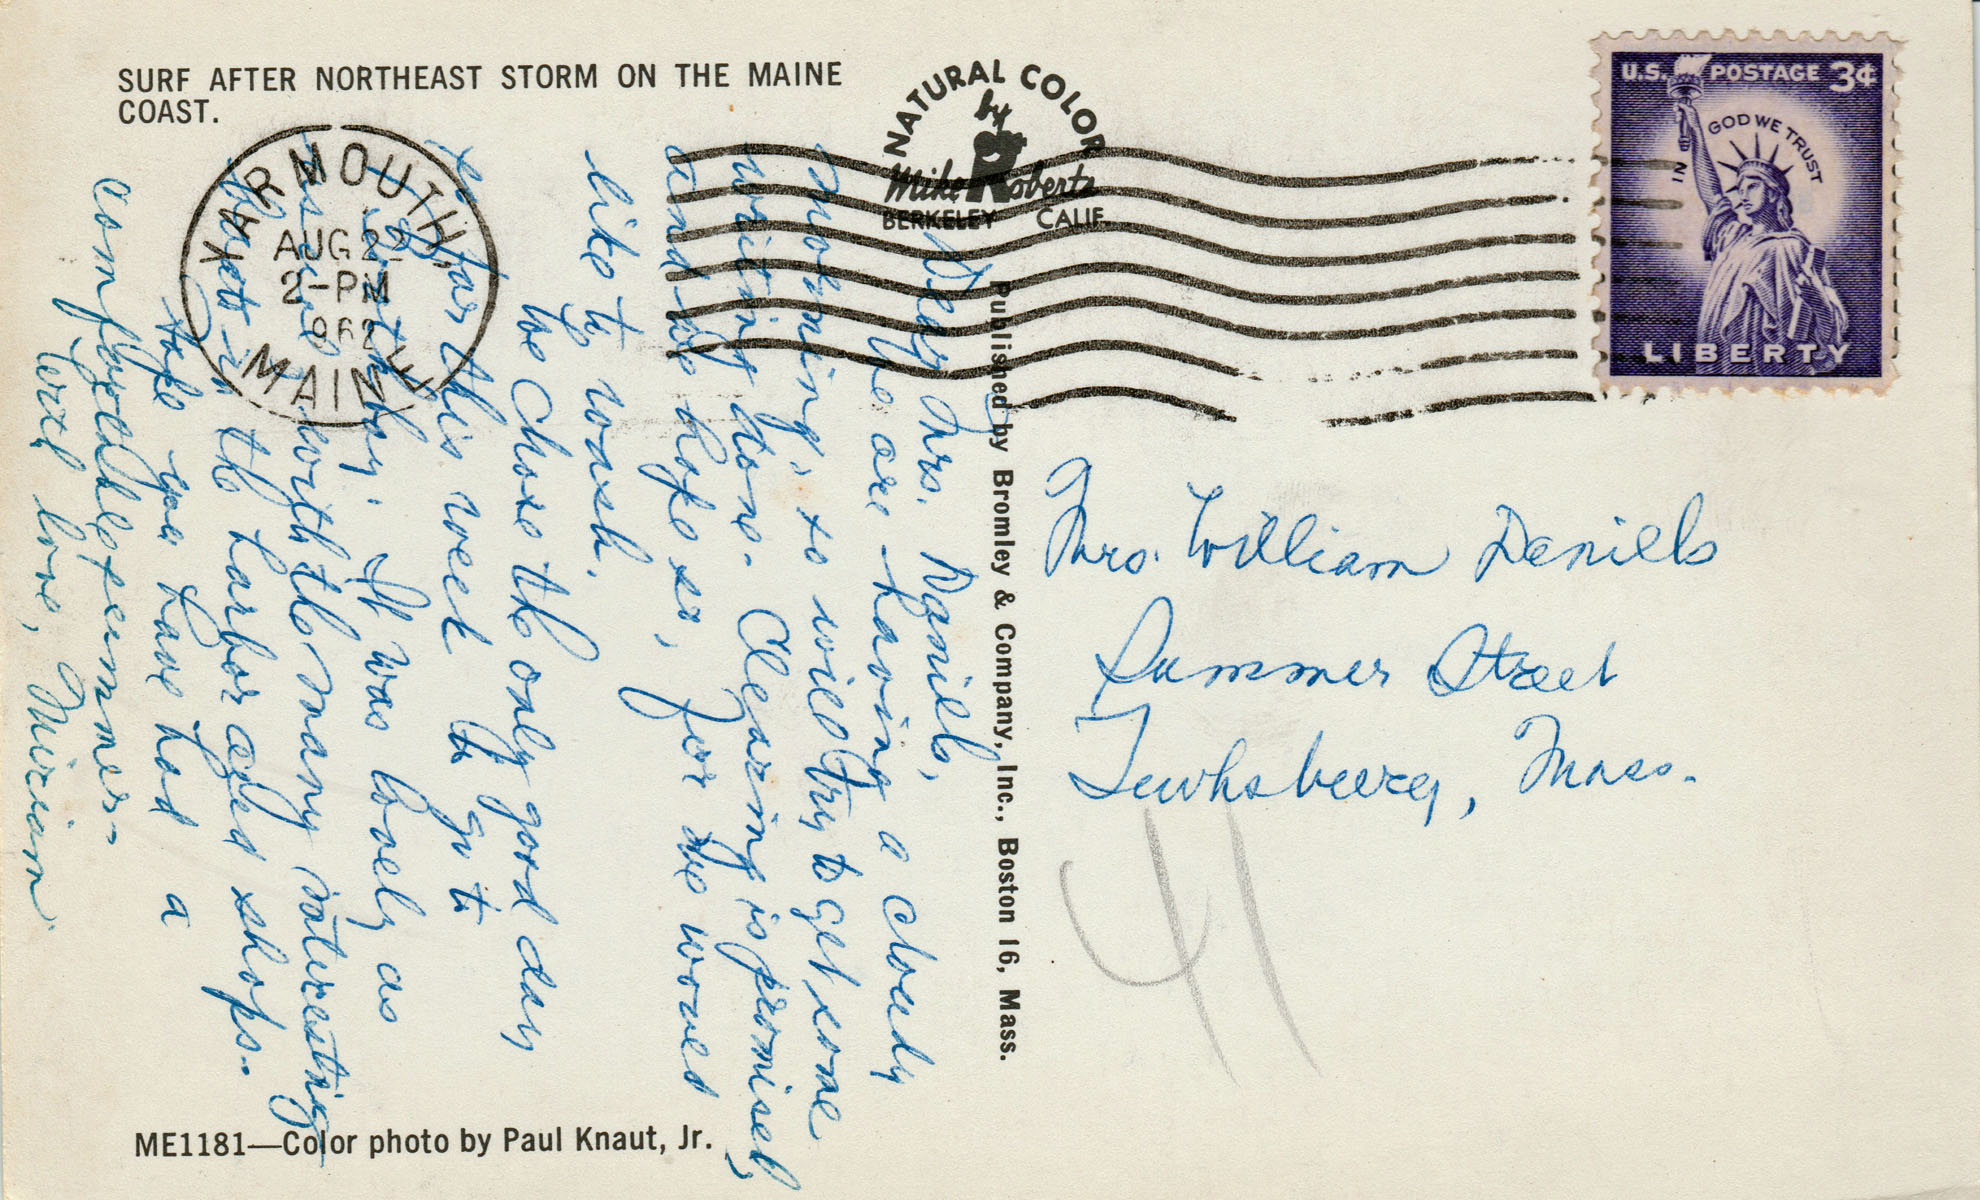 SURF AFTER NORTHEAST STORM ON THE MAINE
COAST.
NATURAL COLOR
by
Mike Roberts
BERKELEY CALIF.
U.S. POSTAGE 3¢
IN GOD WE TRUST
LIBERTY
YARMOUTH,
AUG 22
2-PM
1962
MAINE
Dear Mrs. Daniels,
We are having a cloudy
morning, so will try to get some
writing done. Clearing is promised,
and we hope so, for we would
like to wash.
We chose the only good day
so far this week to go to
Boothbay. It was lovely as
usual with the many interesting
boats in the harbor and shops.
Hope you have had a
comfortable summer.
With love, Miriam
Published by Bromley & Company, Inc., Boston 16, Mass.
Mrs. William Daniels
Summer Street
Tewksbury, Mass.
41
ME1181—Color photo by Paul Knaut, Jr.